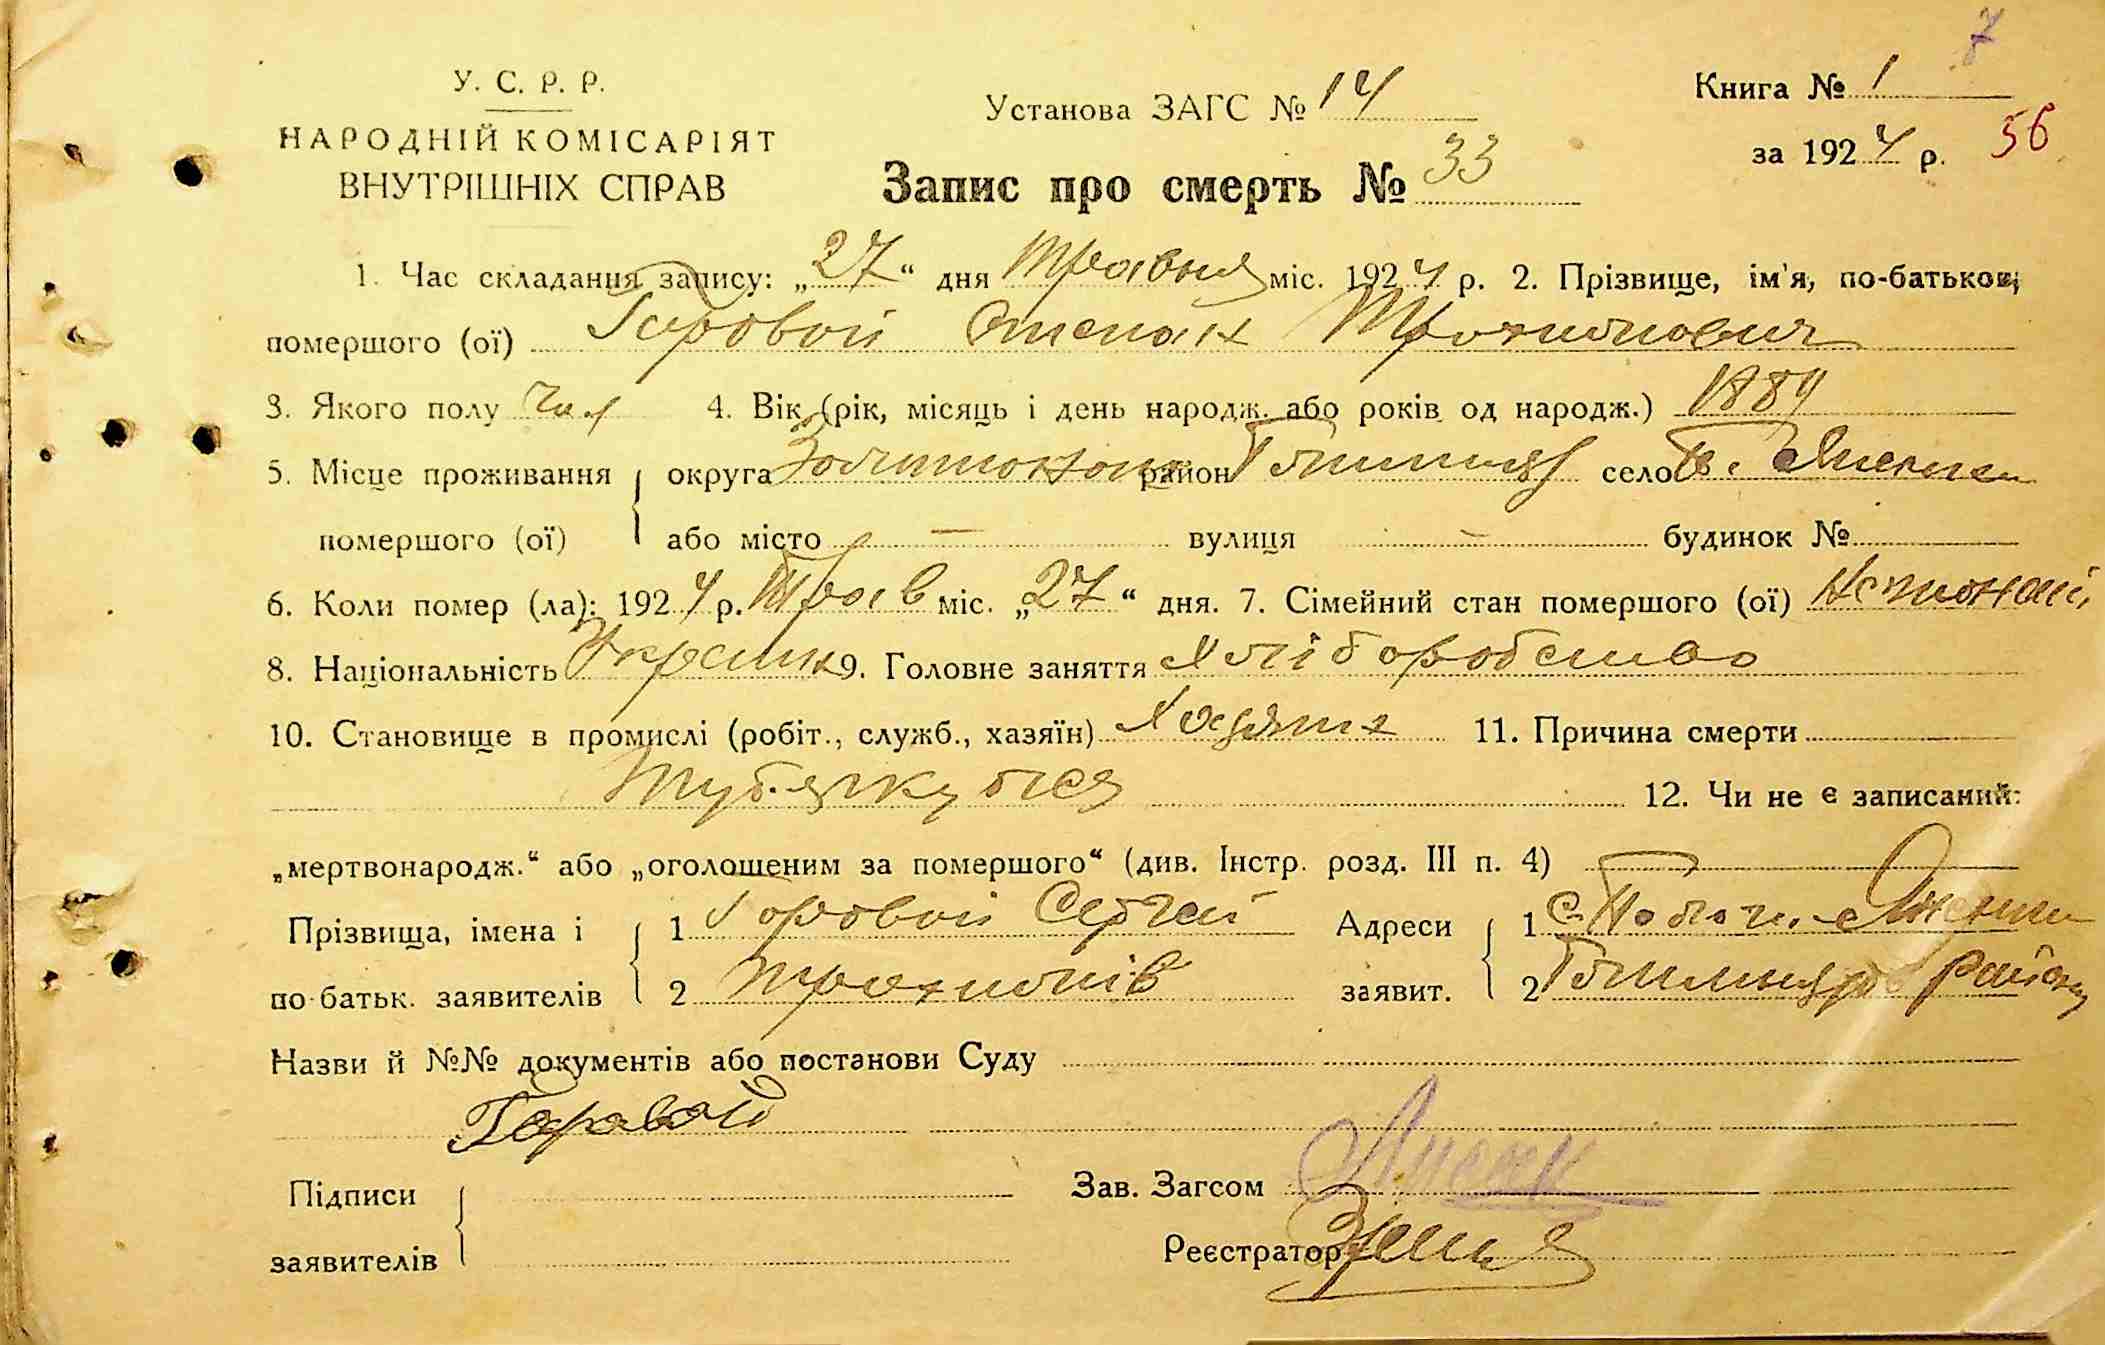 7
У. С. Р. Р.
НАРОДНІЙ КОМІСАРІЯТ
ВНУТРІШНІХ СПРАВ
Установа ЗАГС № 14
Запис про смерть № 33
Книга № 1
за 1924 р. 56
1. Час складання запису: „27“ дня Травня міс. 1924 р. 2. Прізвище, ім'я, по-батькові
помершого (ої) Горовой Степан
3. Якого полу чол 4. Вік (рік, місяць і день народж. або років од народж.) 1889
5. Місце проживання округа район село
помершого (ої) або місто — вулиця — будинок №
6. Коли помер (ла): 1924 р. Трав міс. „27“ дня. 7. Сімейний стан помершого (ої)
8. Національність 9. Головне заняття Хліборобство
10. Становище в промислі (робіт., служб., хазяїн) Хазяин 11. Причина смерти
12. Чи не є записаний:
„мертвонародж.“ або „оголошеним за помершого“ (див. Інстр. розд. III п. 4)
Прізвища, імена і 1 Горовой Сергей Адреси 1 с.
по-батьк. заявителів 2 заявит. 2 району
Назви й №№ документів або постанови Суду
Горовой
Підписи Зав. Загсом
заявителів Реєстратор